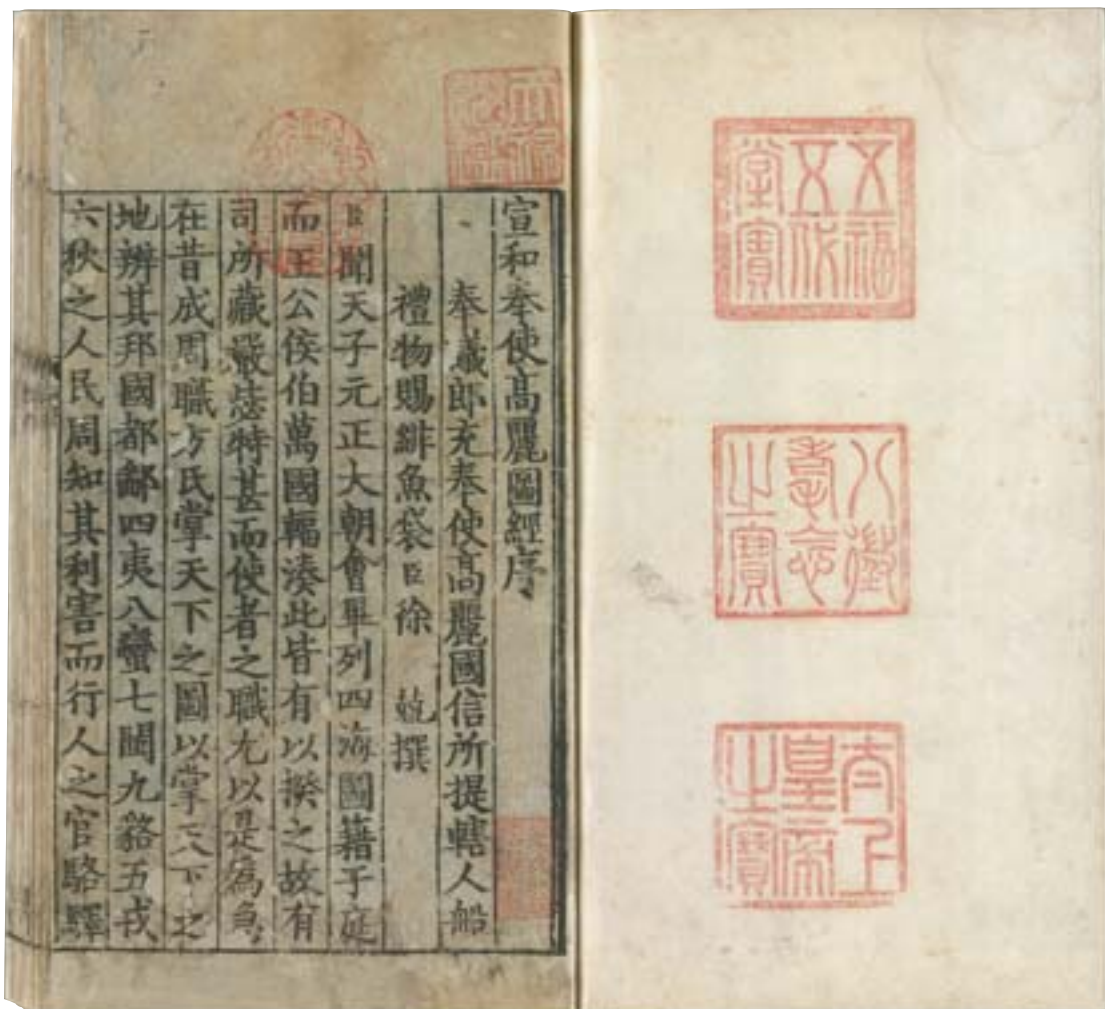 五福
五代
堂寶
八徵
耄念
之寶
太上
皇帝
之寶
宣和奉使高麗圖經序
奉議郎充奉使高麗國信所提轄人船
禮物賜緋魚袋臣徐 兢撰
臣聞天子元正大朝會畢列四海圖籍于庭
而王公侯伯萬國輻湊此皆有以揆之故有
司所藏嚴毖特甚而使者之職尤以是為急
在昔成周職方氏掌天下之圖以掌天下之
地辨其邦國都鄙四夷八蠻七閩九貉五戎
六狄之人民周知其利害而行人之官駱驛